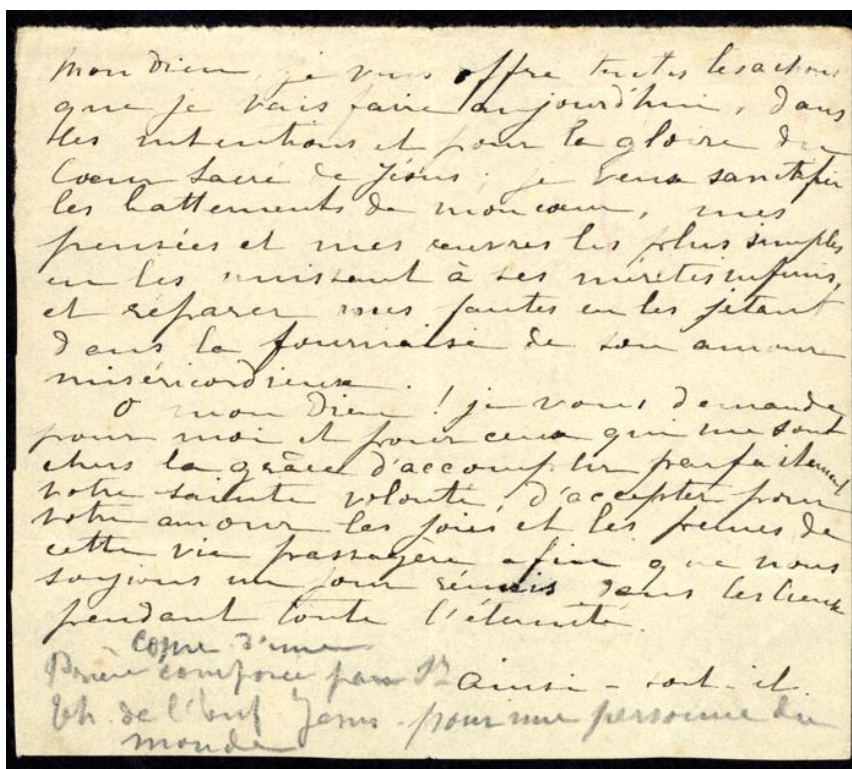 mon Dieu, je vous offre toutes les actions
que je vais faire aujourd'hui, dans
les intentions et pour la gloire du
Coeur Sacré de Jésus; je veux sanctifier
les battements de mon coeur, mes
pensées et mes œuvres les plus simples
en les unissant à ses mérites infinis,
et réparer mes fautes en les jetant
dans la fournaise de son amour
miséricordieux.
O mon Dieu! je vous demande
pour moi et pour ceux qui me sont
chers la grâce d'accomplir parfaitement
votre sainte volonté, d'accepter pour
votre amour les joies et les peines de
cette vie passagère afin que nous
soyions un jour réunis dans les cieux
pendant toute l'éternité.
Copie d'une
Prière composée par Sr Ainsi-soit-il.
Th. de l'Enf Jesus - pour une personne du
monde